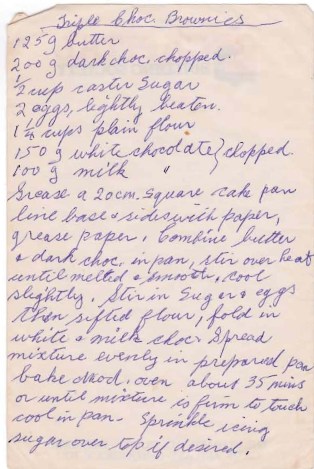 Triple Choc Brownies
125g butter
200g dark choc. chopped.
½ cup caster Sugar
2 eggs, lightly beaten.
1¼ cups plain flour
150g white chocolate } chopped.
100g milk "
Grease a 20cm. Square cake pan
line base & sides with paper,
grease paper. Combine butter
& dark choc. in pan, stir over heat
until melted & smooth. cool
slightly. Stir in Sugar & eggs
then sifted flour, fold in
white & milk choc. Spread
mixture evenly in prepared pan
bake Mod. oven about 35 mins
or until mixture is firm to touch
cool in pan. Sprinkle icing
sugar over top if desired.